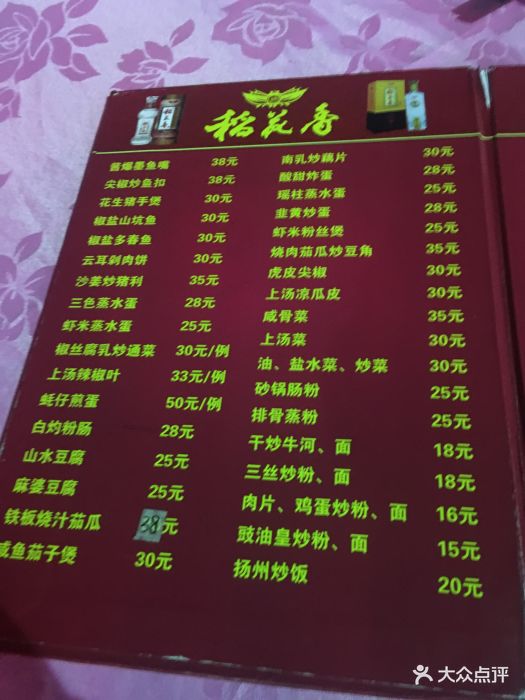 稻花香
酱爆墨鱼嘴 38元
尖椒炒鱼扣 38元
花生猪手煲 30元
椒盐山坑鱼 30元
椒盐多春鱼 30元
云耳剁肉饼 30元
沙姜炒猪利 35元
三色蒸水蛋 28元
虾米蒸水蛋 25元
椒丝腐乳炒通菜 30元/例
上汤辣椒叶 33元/例
蚝仔煎蛋 50元/例
白灼粉肠 28元
山水豆腐 25元
麻婆豆腐 25元
铁板烧汁茄瓜 38元
咸鱼茄子煲 30元
南乳炒藕片 30元
酸甜炸蛋 28元
瑶柱蒸水蛋 25元
韭黄炒蛋 28元
虾米粉丝煲 25元
烧肉茄瓜炒豆角 35元
虎皮尖椒 30元
上汤凉瓜皮 30元
咸骨菜 35元
上汤菜 30元
油、盐水菜、炒菜 30元
砂锅肠粉 25元
排骨蒸粉 25元
干炒牛河、面 18元
三丝炒粉、面 18元
肉片、鸡蛋炒粉、面 16元
豉油皇炒粉、面 15元
扬州炒饭 20元
大众点评